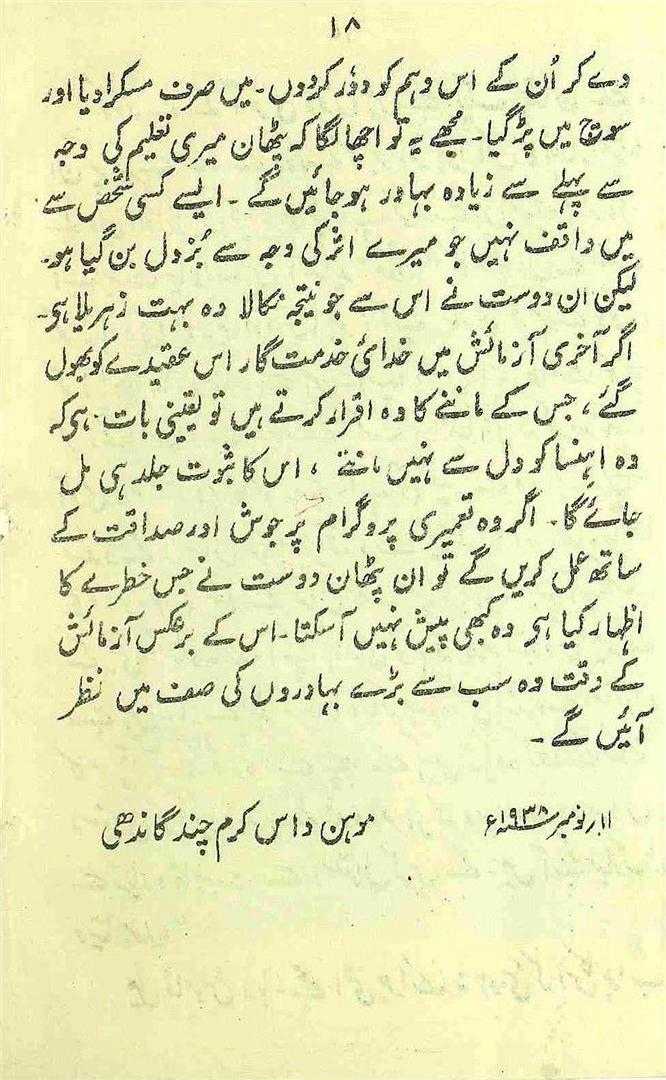 ۱۸
دے کر اُن کے اس وہم کو دوٗر کردوں۔ میں صرف مسکرا دیا اور
سوچ میں پڑ گیا۔ مجھے یہ تو اچھا لگا کہ پٹھان میری تعلیم کی وجہ
سے پہلے سے زیادہ بہادر ہو جائیں گے۔ ایسے کسی شخص سے
میں واقف نہیں جو میرے اثر کی وجہ سے بُزدل بن گیا ہو۔
لیکن ان دوست نے اس سے جو نتیجہ نکالا وہ بہت زہریلا ہی۔
اگر آخری آزمائش میں خدائی خدمت گار اس عقیدے کو بھول
گئے، جس کے ماننے کا وہ اقرار کرتے ہیں تو یقینی بات ہی کہ
وہ اہنسا کو دل سے نہیں مانتے ، اس کا ثبوت جلد ہی مل
جائے گا۔ اگر وہ تعمیری پروگرام پر جوش اور صداقت کے
ساتھ عمل کریں گے تو ان پٹھان دوست نے جس خطرے کا
اظہار کیا ہی وہ کبھی پیش نہیں آسکتا۔ اس کے برعکس آزمائش
کے وقت وہ سب سے بڑے بہادروں کی صف میں نظر
آئیں گے۔
۱۱؍ نومبر ۱۹۳۸ء موہن داس کرم چند گاندھی